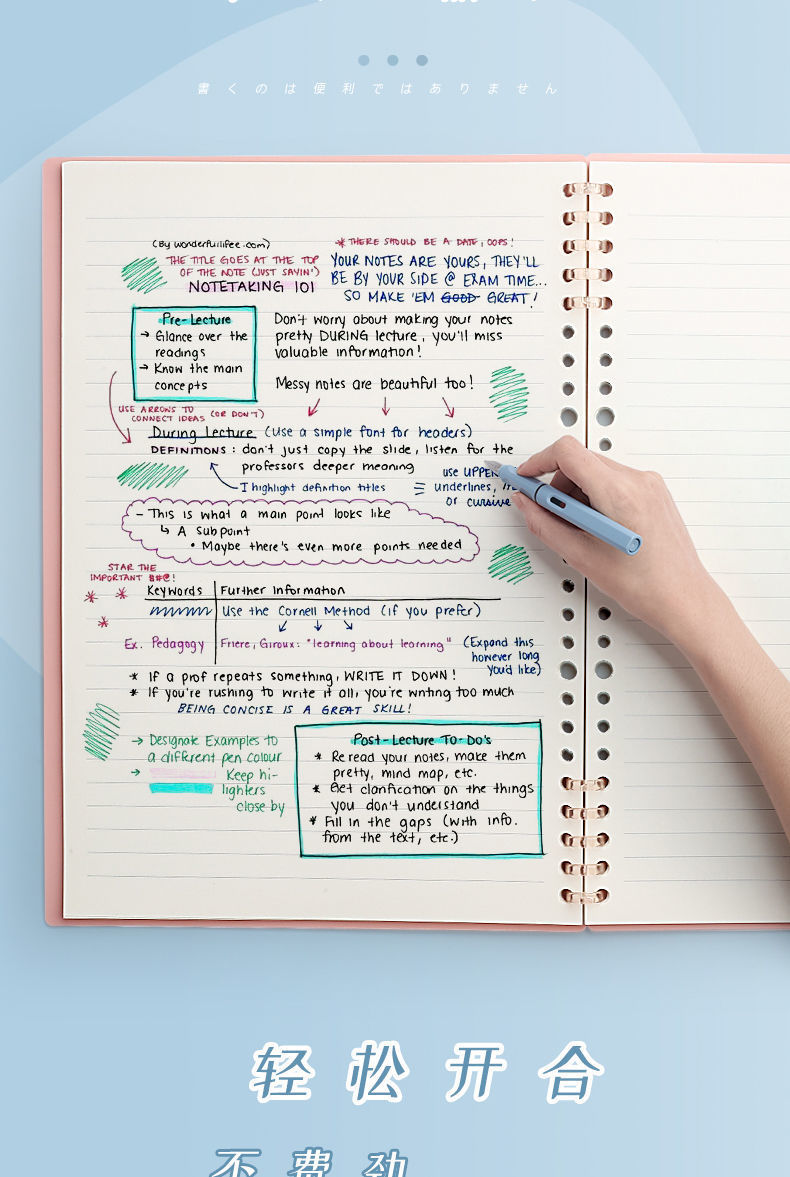 書くのは便利ではありません
(By wonderfulifee.com)
* THERE SHOULD BE A DATE, OOPS!
THE TITLE GOES AT THE TOP
OF THE NOTE (JUST SAYIN')
NOTETAKING 101
YOUR NOTES ARE YOURS, THEY'LL
BE BY YOUR SIDE @ EXAM TIME...
SO MAKE 'EM GOOD GREAT!
Pre-Lecture
→ Glance over the
readings
→ Know the main
concepts
Don't worry about making your notes
pretty DURING lecture, you'll miss
valuable information!
Messy notes are beautiful too!
USE ARROWS TO
CONNECT IDEAS (OR DON'T)
During Lecture (Use a simple font for headers)
DEFINITIONS: don't just copy the slide, listen for the
professors deeper meaning
I highlight definition titles
use UPPER
underlines,
or cursive
- This is what a main point looks like
↳ A Subpoint
• Maybe there's even more points needed
STAR THE
IMPORTANT $#@!
Keywords
Further Information
Use the Cornell Method (if you prefer)
Ex. Pedagogy
Friere, Giroux: "learning about learning"
(Expand this
however long
you'd like)
* If a prof repeats something, WRITE IT DOWN!
* If you're rushing to write it all, you're writing too much
BEING CONCISE IS A GREAT SKILL!
→ Designate Examples to
a different pen colour
→ Keep hi-
lighters
close by
Post-Lecture To-Do's
* Reread your notes, make them
pretty, mind map, etc.
* Get clarification on the things
you don't understand
* Fill in the gaps (with info.
from the text, etc.)
轻松开合
不费劲